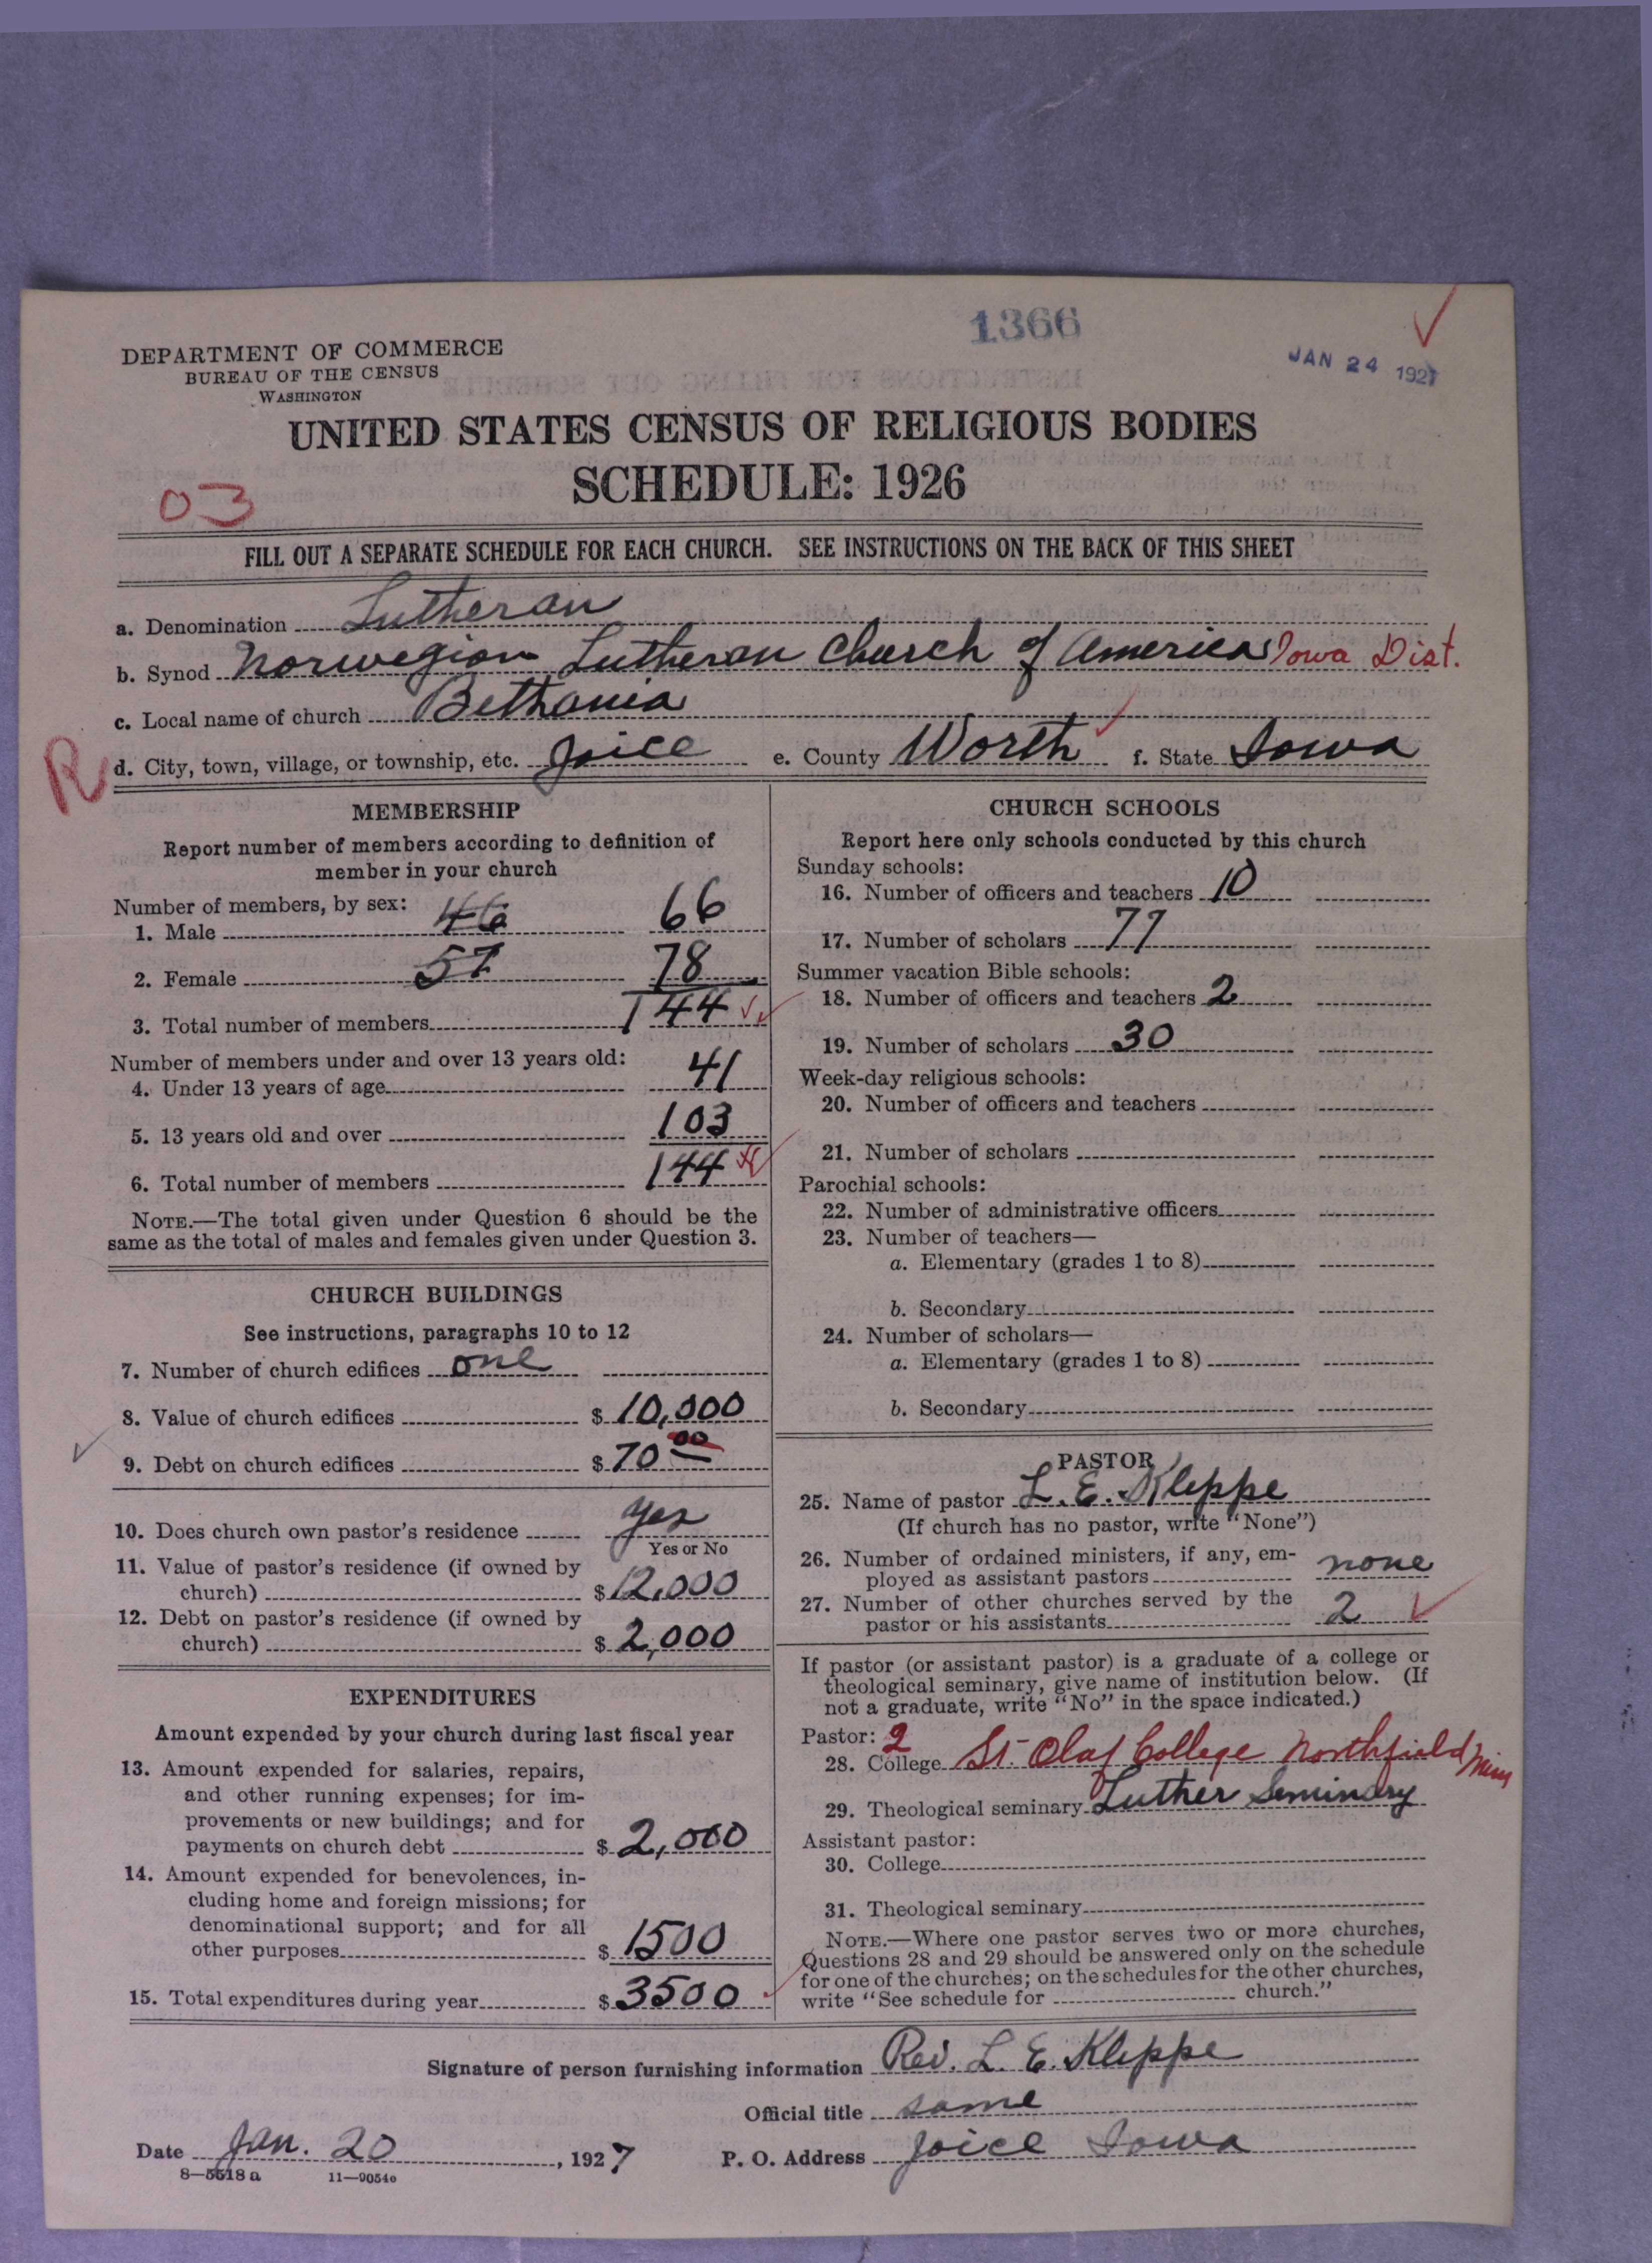 1366
JAN 24 1927
DEPARTMENT OF COMMERCE
BUREAU OF THE CENSUS
WASHINGTON
UNITED STATES CENSUS OF RELIGIOUS BODIES
SCHEDULE: 1926
03
FILL OUT A SEPARATE SCHEDULE FOR EACH CHURCH. SEE INSTRUCTIONS ON THE BACK OF THIS SHEET
a. Denomination Lutheran
b. Synod Norwegian Lutheran Church of America Iowa Dist.
c. Local name of church Bethania
R d. City, town, village, or township, etc. Joice e. County Worth f. State Iowa
MEMBERSHIP
Report number of members according to definition of
member in your church
Number of members, by sex:
1. Male 46 66
2. Female 57 78
3. Total number of members 144
Number of members under and over 13 years old:
4. Under 13 years of age 41
5. 13 years old and over 103
6. Total number of members 144
NOTE.—The total given under Question 6 should be the
same as the total of males and females given under Question 3.
CHURCH BUILDINGS
See instructions, paragraphs 10 to 12
7. Number of church edifices one
8. Value of church edifices $ 10,000
9. Debt on church edifices $ 70 00
10. Does church own pastor's residence yes
Yes or No
11. Value of pastor's residence (if owned by
church) $ 12,000
12. Debt on pastor's residence (if owned by
church) $ 2,000
EXPENDITURES
Amount expended by your church during last fiscal year
13. Amount expended for salaries, repairs,
and other running expenses; for im-
provements or new buildings; and for
payments on church debt $ 2,000
14. Amount expended for benevolences, in-
cluding home and foreign missions; for
denominational support; and for all
other purposes $ 1500
15. Total expenditures during year $ 3500
CHURCH SCHOOLS
Report here only schools conducted by this church
Sunday schools:
16. Number of officers and teachers 10
17. Number of scholars 77
Summer vacation Bible schools:
18. Number of officers and teachers 2
19. Number of scholars 30
Week-day religious schools:
20. Number of officers and teachers
21. Number of scholars
Parochial schools:
22. Number of administrative officers
23. Number of teachers—
a. Elementary (grades 1 to 8)
b. Secondary
24. Number of scholars—
a. Elementary (grades 1 to 8)
b. Secondary
PASTOR
25. Name of pastor L. E. Kleppe
(If church has no pastor, write "None")
26. Number of ordained ministers, if any, em-
ployed as assistant pastors none
27. Number of other churches served by the
pastor or his assistants 2
If pastor (or assistant pastor) is a graduate of a college or
theological seminary, give name of institution below. (If
not a graduate, write "No" in the space indicated.)
Pastor: 2
28. College St. Olaf College Northfield Minn
29. Theological seminary Luther Seminary
Assistant pastor:
30. College
31. Theological seminary
NOTE.—Where one pastor serves two or more churches,
Questions 28 and 29 should be answered only on the schedule
for one of the churches; on the schedules for the other churches,
write "See schedule for church."
Signature of person furnishing information Rev. L. E. Kleppe
Official title same
Date Jan. 20, 1927 P. O. Address Joice Iowa
8—5518 a 11—9054c